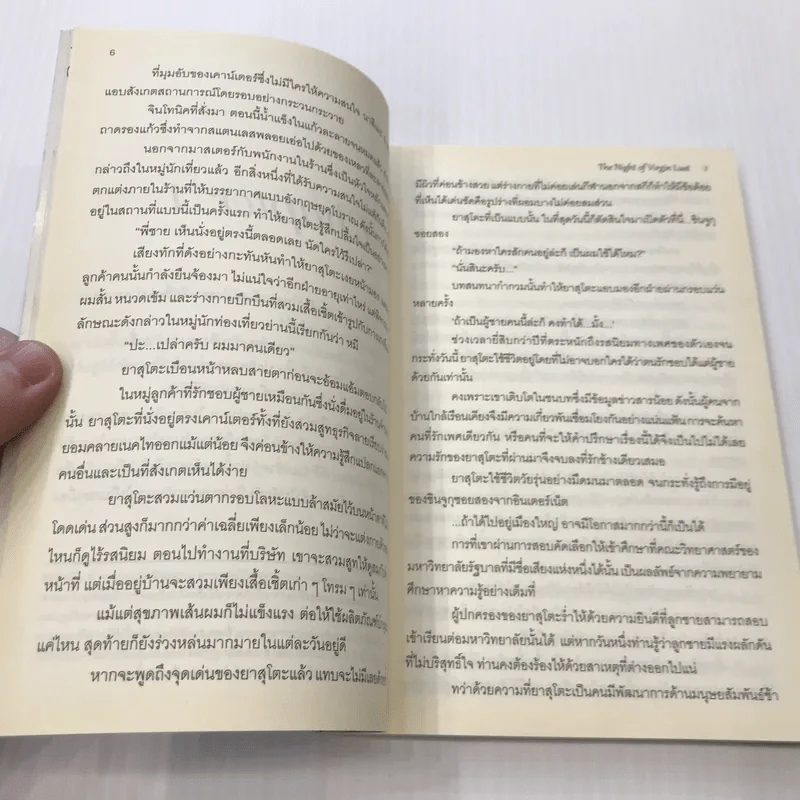 6
ที่มุมอับของเคาน์เตอร์ซึ่งไม่มีใครให้ความสนใจ
แอบสังเกตสถานการณ์โดยรอบอย่างกระวนกระวาย
จินโทนิคที่สั่งมา ตอนนี้น้ำแข็งในแก้วละลายจนหมดแล้ว
ถาดรองแก้วซึ่งทำจากสแตนเลสพลอยเอ่อไปด้วยของเหลว
นอกจากมาสเตอร์กับพนักงานในร้านซึ่งเป็นหัวใจ
กล่าวถึงในหมู่นักเที่ยวแล้ว อีกสิ่งหนึ่งที่ได้รับความสนใจไม่แพ้กัน
ตกแต่งภายในร้านที่ให้บรรยากาศแบบอังกฤษยุคโบราณ ดังนั้น
อยู่ในสถานที่แบบนี้เป็นครั้งแรก ทำให้ยาสุโตะรู้สึกปลื้มใจเป็นอย่าง
“พี่ชาย เห็นนั่งอยู่ตรงนี้ตลอดเลย นัดใครไว้รึเปล่า?”
เสียงทักที่ดังอย่างกะทันหันทำให้ยาสุโตะเงยหน้ามอง
ลูกค้าคนนั้นกำลังยืนจ้องมา ไม่แน่ใจว่าอีกฝ่ายอายุเท่าไหร่ แต่
ผมสั้น หนวดเข้ม และร่างกายบึกบึนที่สวมเสื้อเชิ้ตเข้ารูปกับกางเกง
ลักษณะดังกล่าวในหมู่นักท่องเที่ยวย่านนี้เรียกกันว่า หมี
“ปะ...เปล่าครับ ผมมาคนเดียว”
ยาสุโตะเบือนหน้าหลบสายตาก่อนจะอ้อมแอ้มตอบกลับไป
ในหมู่ลูกค้าที่รักชอบผู้ชายเหมือนกันซึ่งนั่งดื่มอยู่ในร้าน
นั้น ยาสุโตะที่นั่งอยู่ตรงเคาน์เตอร์ทั้งที่ยังสวมสูทธุรกิจลายเรียบ
ยอมคลายเนคไทออกแม้แต่น้อย จึงค่อนข้างให้ความรู้สึกแปลกแยก
คนอื่นและเป็นที่สังเกตเห็นได้ง่าย
ยาสุโตะสวมแว่นตากรอบโลหะแบบล้าสมัยไว้บนหน้าตาที่ไม่
โดดเด่น ส่วนสูงก็มากกว่าค่าเฉลี่ยเพียงเล็กน้อย ไม่ว่าจะแต่งกาย
ไหนก็ดูไร้รสนิยม ตอนไปทำงานที่บริษัท เขาจะสวมสูทให้ดูสม
หน้าที่ แต่เมื่ออยู่บ้านจะสวมเพียงเสื้อเชิ้ตเก่า ๆ โทรม ๆ เท่านั้น
แม้แต่สุขภาพเส้นผมก็ไม่แข็งแรง ต่อให้ใช้ผลิตภัณฑ์
แค่ไหน สุดท้ายก็ยังร่วงหล่นมากมายในแต่ละวันอยู่ดี
หากจะพูดถึงจุดเด่นของยาสุโตะแล้ว แทบจะไม่มีเลย
The Night of Virgin Lust 7
มีผิวที่ค่อนข้างสวย แต่ร่างกายที่ไม่ค่อยเล่นกีฬานอกจากสกีก็ทำให้มีข้อด้อย
ที่เห็นได้เด่นชัดคือรูปร่างที่ผอมบางไม่ค่อยสมส่วน
ยาสุโตะที่เป็นแบบนั้น ในที่สุดวันนี้ก็ตัดสินใจมาเปิดตัวที่นี่...ชินจูกุ
ซอยสอง
“ถ้ามองหาใครสักคนอยู่ล่ะก็ เป็นผมใช้ได้ไหม?”
“นั่นสินะครับ...”
บทสนทนากำกวมนั้นทำให้ยาสุโตะแอบมองอีกฝ่ายผ่านกรอบแว่น
หลายครั้ง
“ถ้าเป็นผู้ชายคนนี้ล่ะก็ คงทำได้...มั้ง...”
ช่วงเวลายี่สิบกว่าปีที่ตระหนักถึงรสนิยมทางเพศของตัวเองจน
กระทั่งวันนี้ ยาสุโตะใช้ชีวิตอยู่โดยที่ไม่อาจบอกใครได้ว่าตนรักชอบได้แต่ผู้ชาย
ด้วยกันเท่านั้น
คงเพราะเขาเติบโตในชนบทซึ่งมีข้อมูลข่าวสารน้อย ดังนั้นผู้คนจาก
บ้านใกล้เรือนเคียงจึงมีความเกี่ยวพันเชื่อมโยงกันอย่างแน่นแฟ้น การจะค้นหา
คนที่รักเพศเดียวกัน หรือคนที่จะให้คำปรึกษาเรื่องนี้ได้จึงเป็นไปไม่ได้เลย
ความรักของยาสุโตะที่ผ่านมาจึงจบลงที่รักข้างเดียวเสมอ
ยาสุโตะใช้ชีวิตวัยรุ่นอย่างมืดมนมาตลอด จนกระทั่งรู้ถึงการมีอยู่
ของชินจูกุซอยสองจากอินเตอร์เน็ต
...ถ้าได้ไปอยู่เมืองใหญ่ อาจมีโอกาสมากกว่านี้ก็เป็นได้
การที่เขาผ่านการสอบคัดเลือกให้เข้าศึกษาที่คณะวิทยาศาสตร์ของ
มหาวิทยาลัยรัฐบาลที่มีชื่อเสียงแห่งหนึ่งได้นั้น เป็นผลลัพธ์จากความพยายาม
ศึกษาหาความรู้อย่างเต็มที่
ผู้ปกครองของยาสุโตะร่ำไห้ด้วยความยินดีที่ลูกชายสามารถสอบ
เข้าเรียนต่อมหาวิทยาลัยนั้นได้ แต่หากวันหนึ่งท่านรู้ว่าลูกชายมีแรงผลักดัน
ที่ไม่บริสุทธิ์ใจ ท่านคงต้องร้องไห้ด้วยสาเหตุที่ต่างออกไปแน่
ทว่าด้วยความที่ยาสุโตะเป็นคนมีพัฒนาการด้านมนุษยสัมพันธ์ช้า